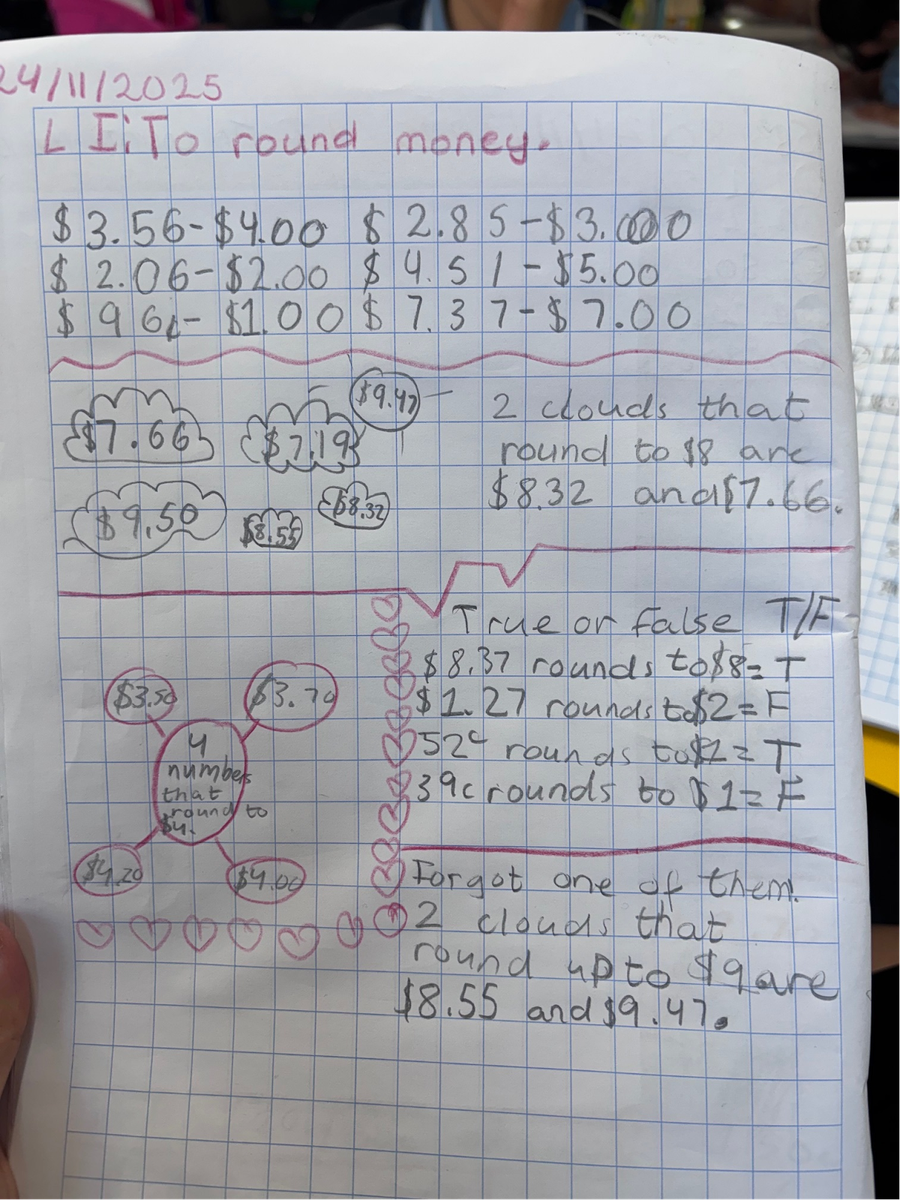 24/11/2025
L I: To round money.
$3.56-$4.00 $2.85-$3.000
$2.06-$2.00 $4.51-$5.00
$96c-$1.00 $7.37-$7.00
$9.47
$7.66 $7.19
$9.50 $8.55 $8.32
2 clouds that
round to $8 are
$8.32 and $7.66.
True or false T/F
$8.37 rounds to $8= T
$1.27 rounds to $2 = F
52c rounds to $1 = T
39c rounds to $1= F
$3.50 $3.70
4
numbers
that
round to
$4.
$4.20 $4.00
Forgot one of them.
2 clouds that
round up to $9 are
$8.55 and $9.47.